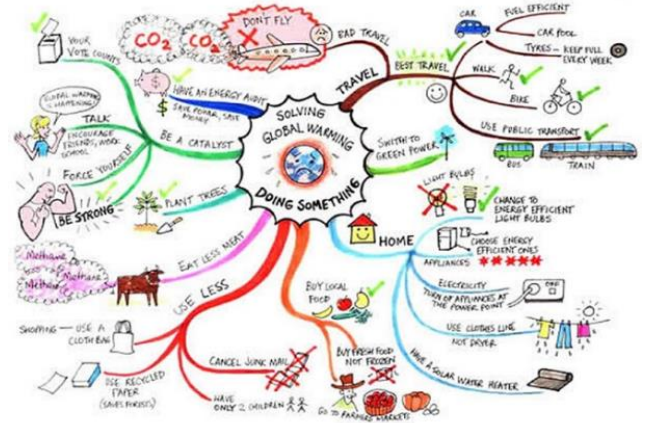 SOLVING
GLOBAL WARMING
DOING SOMETHING
TRAVEL
BAD TRAVEL
DON'T FLY
CO2
CO2
BEST TRAVEL
CAR
FUEL EFFICIENT
CAR POOL
TYRES - KEEP FULL
EVERY WEEK
WALK
BIKE
USE PUBLIC TRANSPORT
BUS
TRAIN
SWITCH TO
GREEN POWER
HOME
LIGHT BULBS
CHANGE TO
ENERGY EFFICIENT
LIGHT BULBS
APPLIANCES
CHOOSE ENERGY
EFFICIENT ONES
ELECTRICITY
TURN OF APPLIANCES AT
THE POWER POINT
USE CLOTHES LINE
NOT DRYER
HAVE A SOLAR WATER HEATER
BUY LOCAL
FOOD
BUY FRESH FOOD
NOT FROZEN
GO TO FARMERS MARKETS
USE LESS
CANCEL JUNK MAIL
HAVE
ONLY 2 CHILDREN
USE RECYCLED
PAPER
(SAVES FORESTS)
SHOPPING - USE A
CLOTH BAG
EAT LESS MEAT
Methane
Methane
PLANT TREES
BE A CATALYST
YOUR
VOTE COUNTS
TALK
GLOBAL WARMING
IS HAPPENING!
ENCOURAGE
FRIENDS, WORK
SCHOOL
FORCE YOURSELF
BE STRONG
HAVE AN ENERGY AUDIT
SAVE POWER, SAVE
MONEY
$